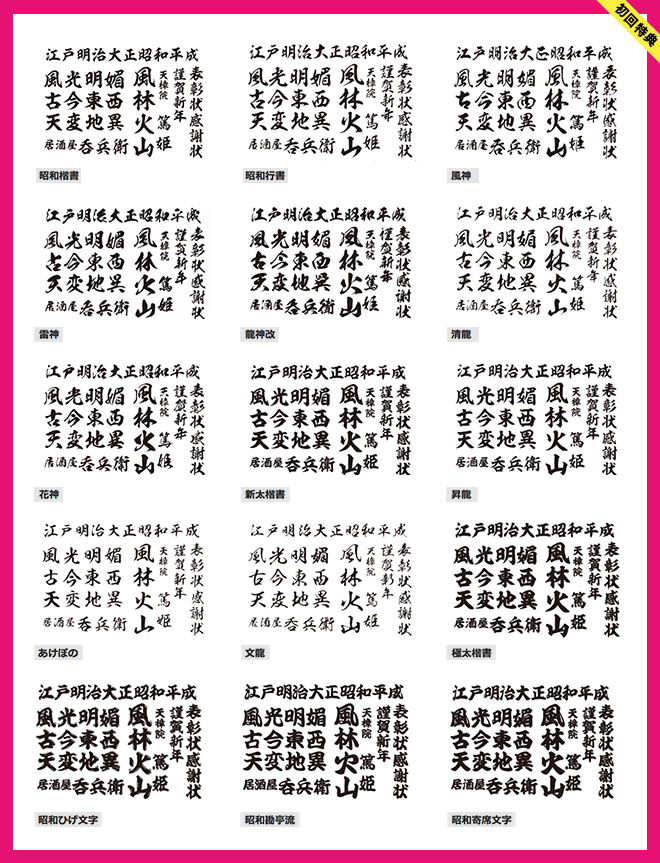 初回特典
江戸明治大正昭和平成
風光明媚
古今東西
天変地異
居酒屋呑兵衛
風林火山
天樟院 篤姫
謹賀新年
表彰状感謝状
昭和楷書
江戸明治大正昭和平成
風光明媚
古今東西
天変地異
居酒屋呑兵衛
風林火山
天樟院 篤姫
謹賀新年
表彰状感謝状
昭和行書
江戸明治大正昭和平成
風光明媚
古今東西
天変地異
居酒屋呑兵衛
風林火山
天樟院 篤姫
謹賀新年
表彰状感謝状
風神
江戸明治大正昭和平成
風光明媚
古今東西
天変地異
居酒屋呑兵衛
風林火山
天樟院 篤姫
謹賀新年
表彰状感謝状
雷神
江戸明治大正昭和平成
風光明媚
古今東西
天変地異
居酒屋呑兵衛
風林火山
天樟院 篤姫
謹賀新年
表彰状感謝状
龍神改
江戸明治大正昭和平成
風光明媚
古今東西
天変地異
居酒屋呑兵衛
風林火山
天樟院 篤姫
謹賀新年
表彰状感謝状
清龍
江戸明治大正昭和平成
風光明媚
古今東西
天変地異
居酒屋呑兵衛
風林火山
天樟院 篤姫
謹賀新年
表彰状感謝状
花神
江戸明治大正昭和平成
風光明媚
古今東西
天変地異
居酒屋呑兵衛
風林火山
天樟院 篤姫
謹賀新年
表彰状感謝状
新太楷書
江戸明治大正昭和平成
風光明媚
古今東西
天変地異
居酒屋呑兵衛
風林火山
天樟院 篤姫
謹賀新年
表彰状感謝状
昇龍
江戸明治大正昭和平成
風光明媚
古今東西
天変地異
居酒屋呑兵衛
風林火山
天樟院 篤姫
謹賀新年
表彰状感謝状
あけぼの
江戸明治大正昭和平成
風光明媚
古今東西
天変地異
居酒屋呑兵衛
風林火山
天樟院 篤姫
謹賀新年
表彰状感謝状
文龍
江戸明治大正昭和平成
風光明媚
古今東西
天変地異
居酒屋呑兵衛
風林火山
天樟院 篤姫
謹賀新年
表彰状感謝状
極太楷書
江戸明治大正昭和平成
風光明媚
古今東西
天変地異
居酒屋呑兵衛
風林火山
天樟院 篤姫
謹賀新年
表彰状感謝状
昭和ひげ文字
江戸明治大正昭和平成
風光明媚
古今東西
天変地異
居酒屋呑兵衛
風林火山
天樟院 篤姫
謹賀新年
表彰状感謝状
昭和勘亭流
江戸明治大正昭和平成
風光明媚
古今東西
天変地異
居酒屋呑兵衛
風林火山
天樟院 篤姫
謹賀新年
表彰状感謝状
昭和寄席文字